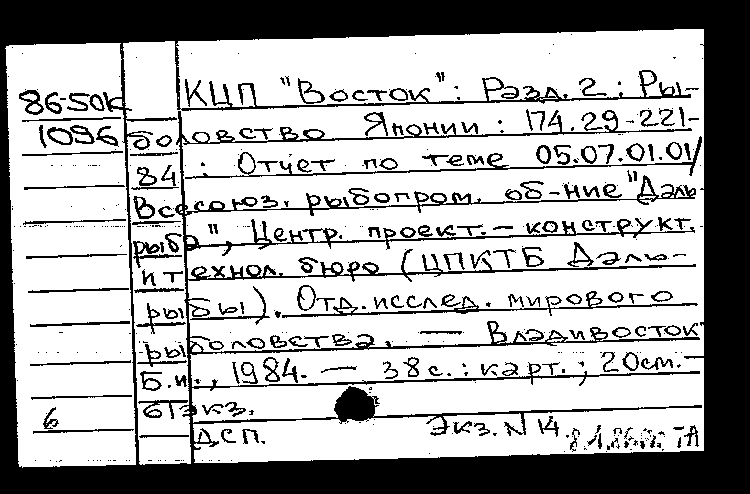 86-50к КЦП "Восток": Разд. 2: Ры-
1096 боловство Японии: 174.29-221-
84: Отчет по теме 05.07.01.01/
Всесоюз. рыбопром. об-ние "Даль-
рыба", Центр. проект.-конструкт.
и технол. бюро (ЦПКТБ Даль-
рыбы). Отд. исслед. мирового
рыболовства. — Владивосток:
Б.и., 1984. — 38 с.: карт.; 20 см. —
6 61 экз.
ДСП. Экз. N 14